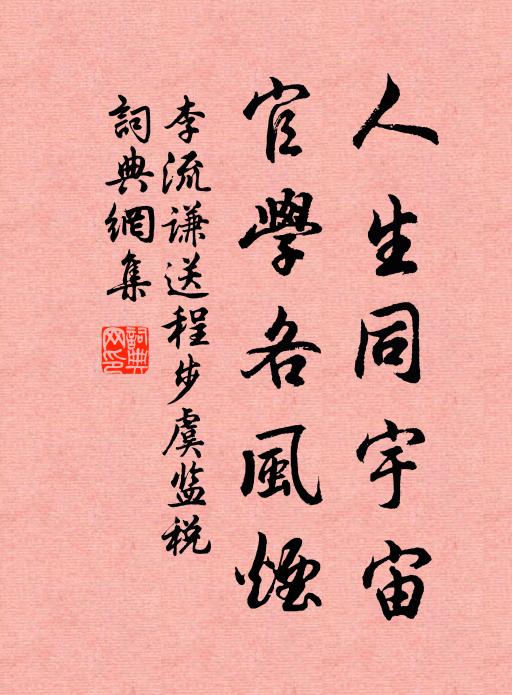 人生同宇宙
官學各風煙
李流谦送程步虞监税
詞典網集
詞典網印